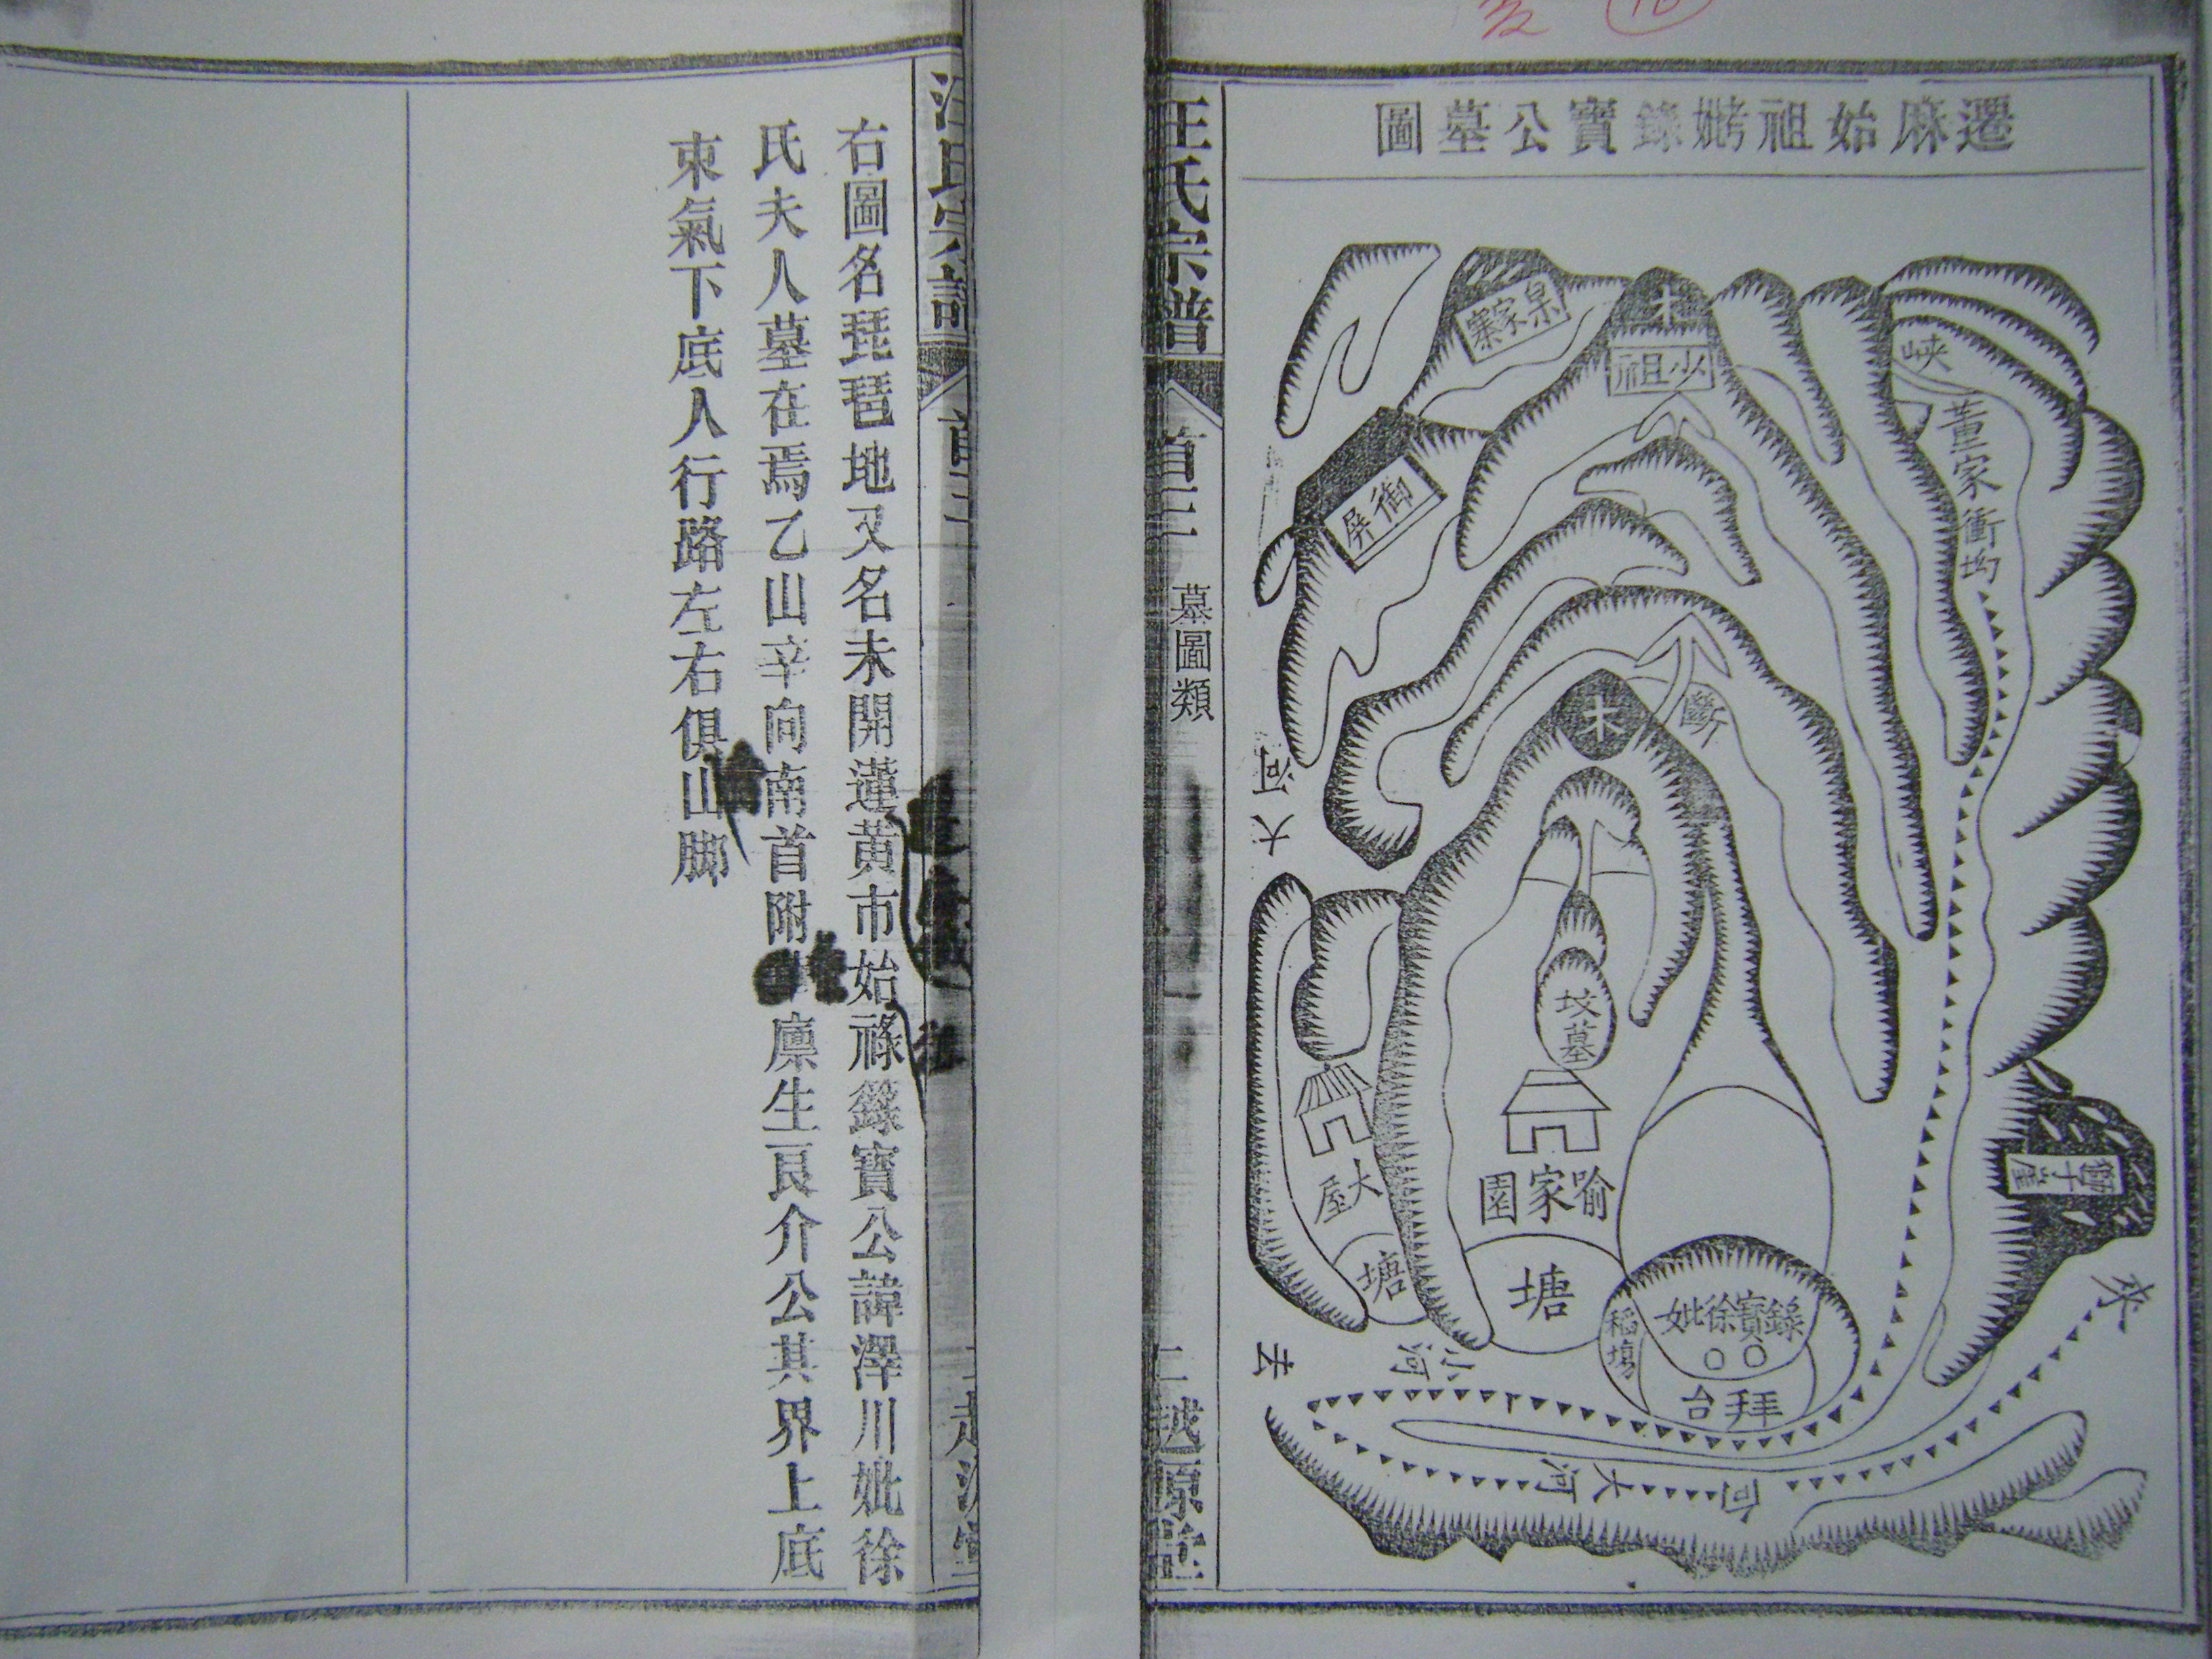 遷麻始祖妣錄寶公墓圖
木
少祖
峽
董家衝坳
御屏
斷
木
大河
坟墓
獅子崖
大屋
喻家園
塘
塘
稻塲
錄寶徐妣
拜台
來
去
小河
大河
汪氏宗譜
首三
墓圖類
二
越源堂
右圖名琵琶地又名未開蓮黃市始祿錄寶公諱澤川妣徐
氏夫人墓在焉乙山辛向南首附廪生艮介公其界上底
束氣下底人行路左右俱山脚